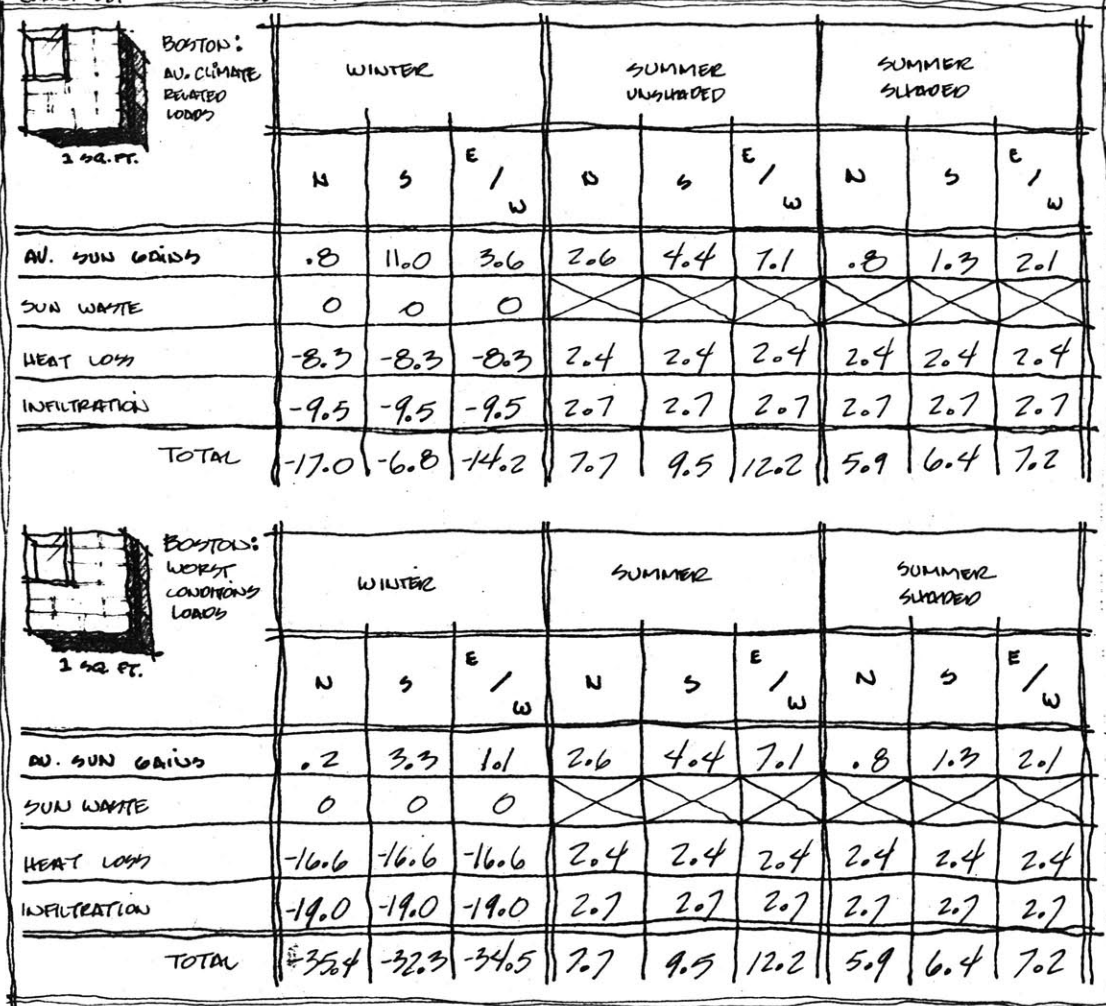 BOSTON:
AV. CLIMATE
RELATED
LOADS
1 SQ. FT.
WINTER
SUMMER
UNSHADED
SUMMER
SHADED
N S E/W N S E/W N S E/W
AV. SUN GAINS .8 11.0 3.6 2.6 4.4 7.1 .8 1.3 2.1
SUN WASTE 0 0 0
HEAT LOSS -8.3 -8.3 -8.3 2.4 2.4 2.4 2.4 2.4 2.4
INFILTRATION -9.5 -9.5 -9.5 2.7 2.7 2.7 2.7 2.7 2.7
TOTAL -17.0 -6.8 -14.2 7.7 9.5 12.2 5.9 6.4 7.2
BOSTON:
WORST
CONDITIONS
LOADS
1 SQ. FT.
WINTER
SUMMER
SUMMER
SHADED
N S E/W N S E/W N S E/W
AV. SUN GAINS .2 3.3 1.1 2.6 4.4 7.1 .8 1.3 2.1
SUN WASTE 0 0 0
HEAT LOSS -16.6 -16.6 -16.6 2.4 2.4 2.4 2.4 2.4 2.4
INFILTRATION -19.0 -19.0 -19.0 2.7 2.7 2.7 2.7 2.7 2.7
TOTAL -35.4 -32.3 -34.5 7.7 9.5 12.2 5.9 6.4 7.2